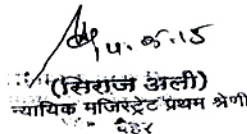 4.5.15
(सिराज अली)
न्यायिक मजिस्ट्रेट प्रथम श्रेणी